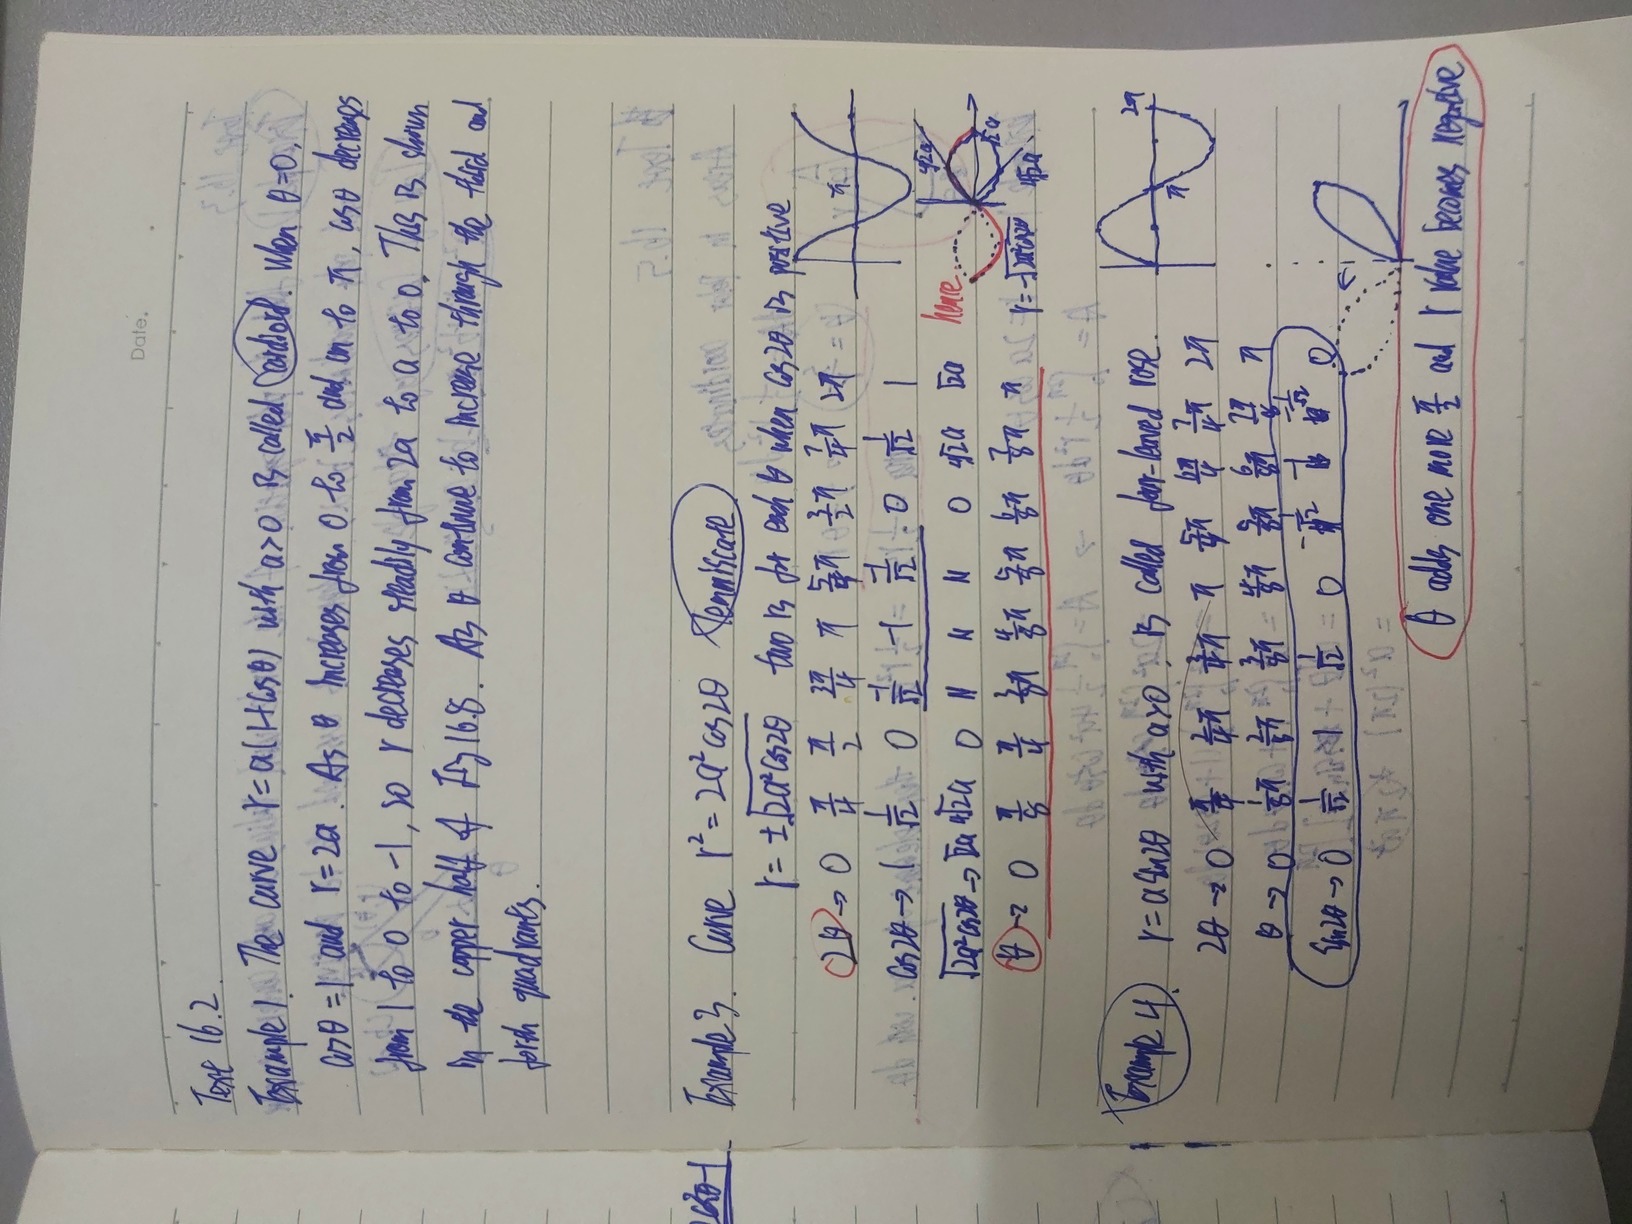 Date.
Text 16.2.
Example 1. The curve r = a(1+cosθ) with a>0 is called cardioid. When θ=0,
cosθ=1 and r=2a. As θ increases from 0 to π/2 and on to π, cosθ decreases
from 1 to 0 to -1, so r decreases steadily from 2a to a to 0. This is shown
in the copper half of Fig 16.8. As θ continue to increase through the third and
forth quadrants.
Example 3. Curve r² = 2a²cos2θ Lemniscate
r = ±√2a²cos2θ two rs for each θ when cos2θ is positive
2θ → 0 π/4 π/2 3π/4 π 5/4π 3/2π 7/4π 2π
π
cos2θ → 1 1/√2 0 -1/√2 -1 -1/√2 0 1/√2 1
√2a²cos2θ → √2a ∜2a 0 N N N 0 ∜2a √2a
hence
∜2a
√2a
∜2a
r=-√2a²cos2θ
θ → 0 π/8 π/4 3/8π 4/8π 5/8π 6/8π 7/8π π
Example 4. r = a sin2θ with a>0. is called four-leaved rose.
2π
π
2θ → 0 π/4 2/4π 3/4π π 5/4π 6π/4 7/4π 2π
θ → 0 1/8π 2/8π 3/8π 4/8π 5/8π 6/8π 7π/8 π
sin2θ → 0 1/√2 1 1/√2 0 -1/√2 -1 -1/√2 0
θ adds one more π/2 and r value becomes negative